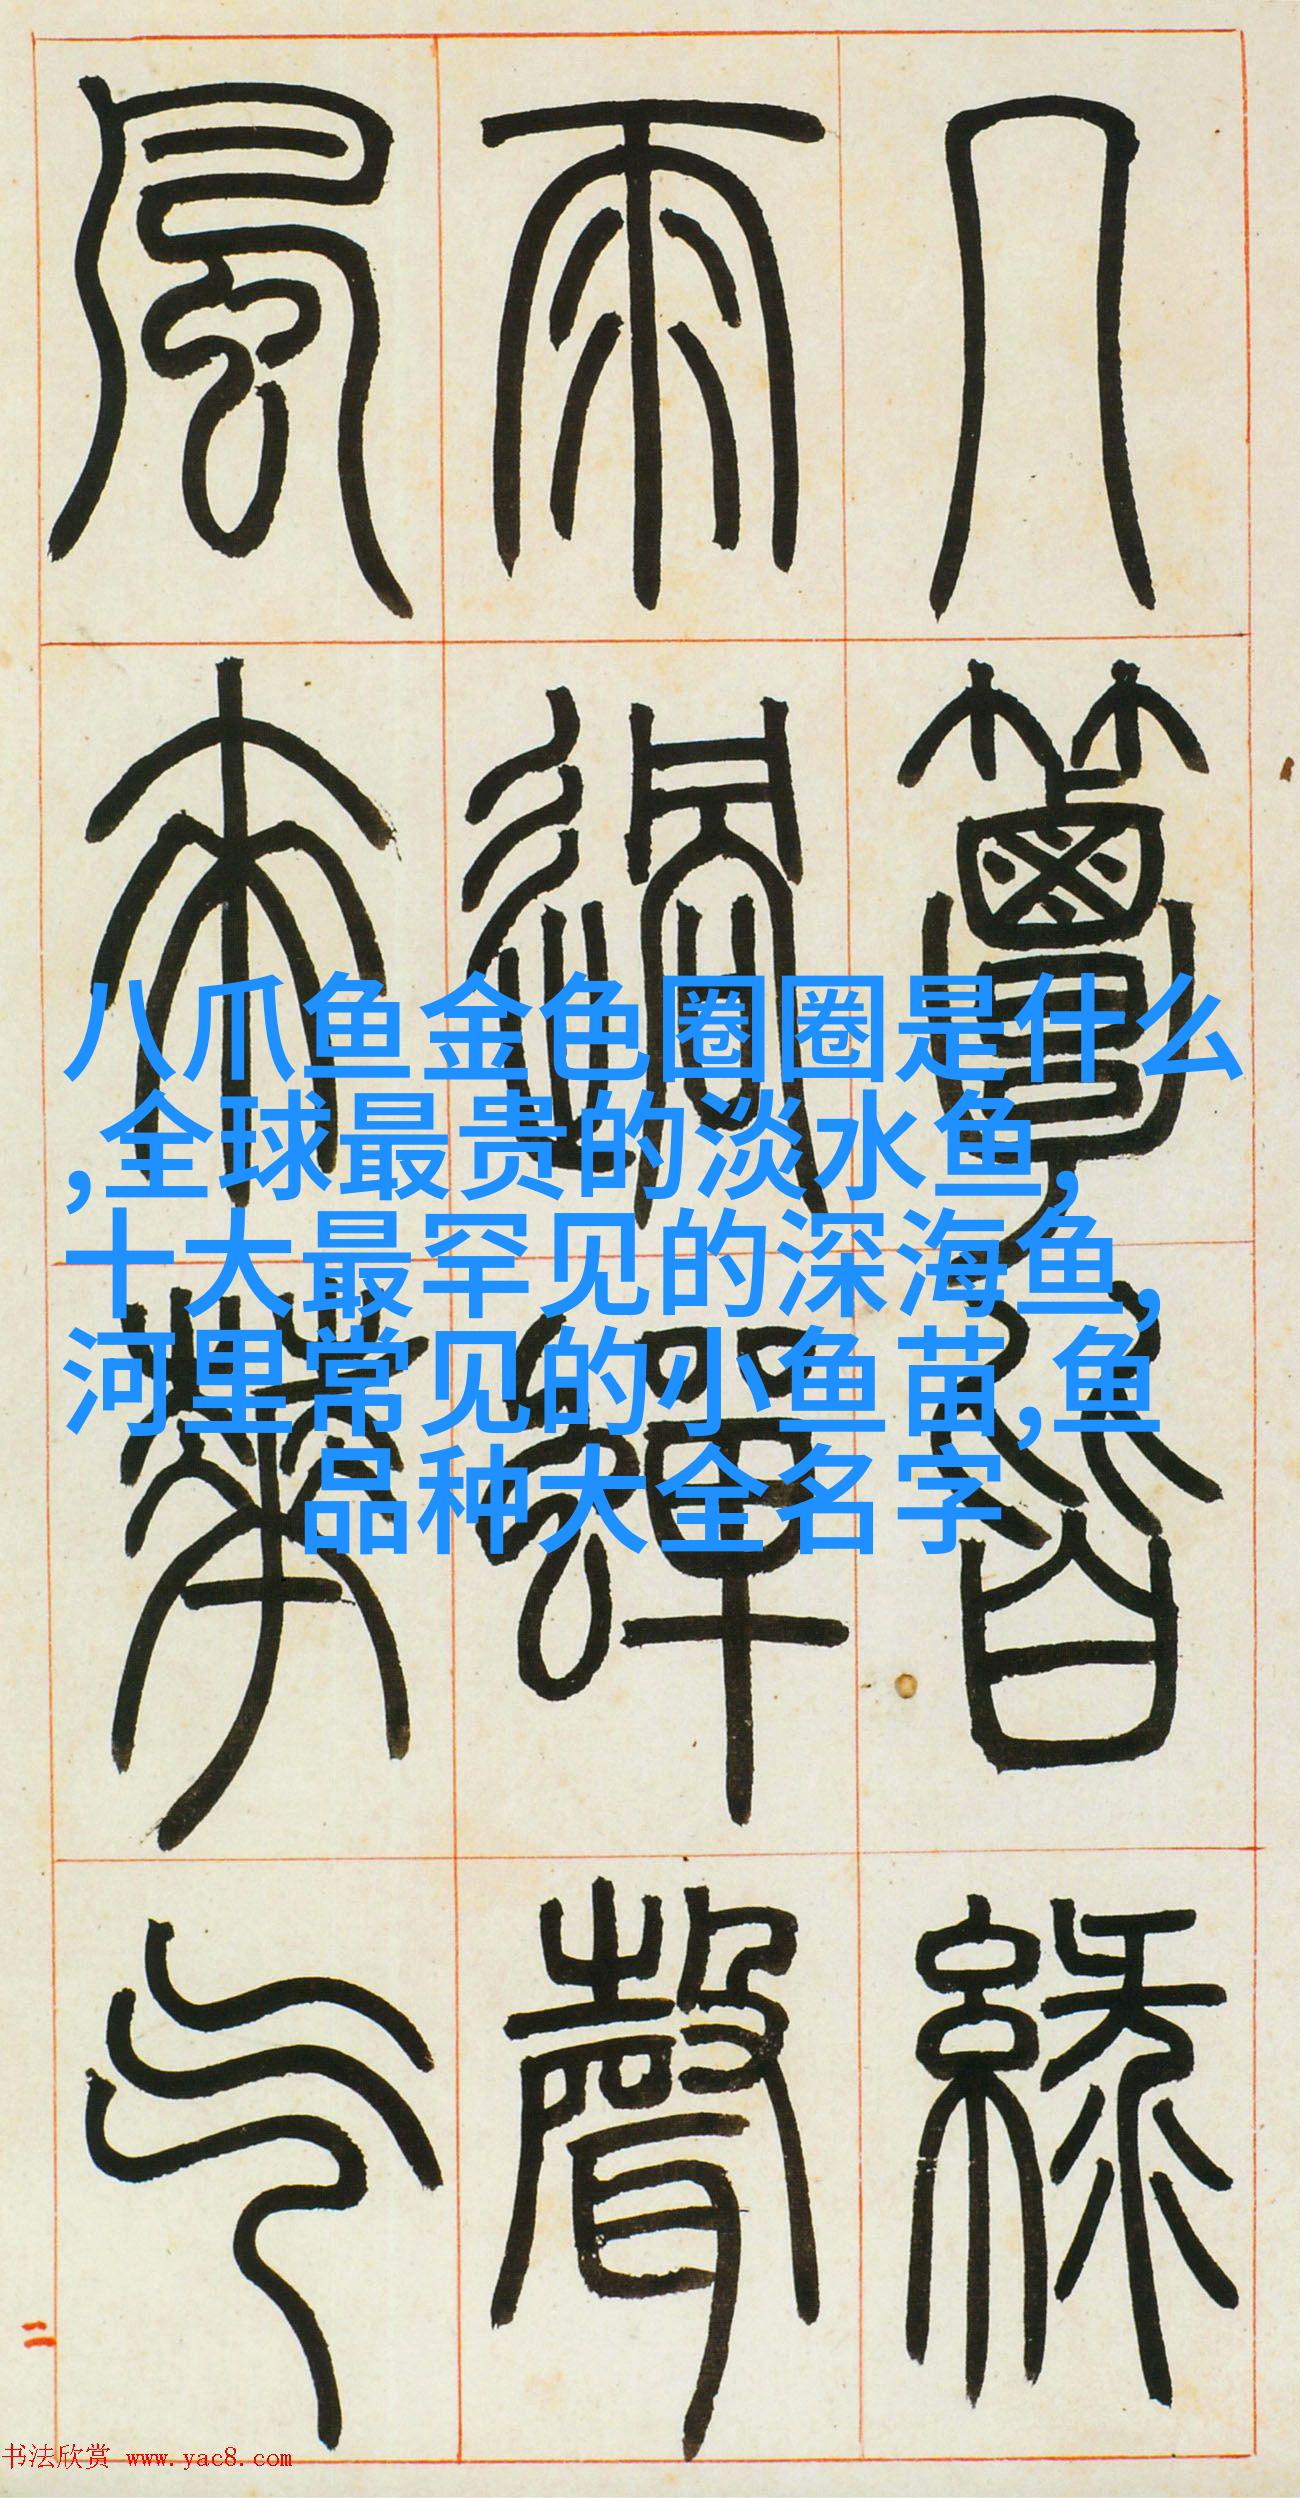 几簟皆綠
雨過蟬聲
風來華气
八爪鱼金色圈圈是什么
,全球最贵的淡水鱼,
十大最罕见的深海鱼,
河里常见的小鱼苗,鱼
品种大全名字
二
书法欣赏 www.yac8.com